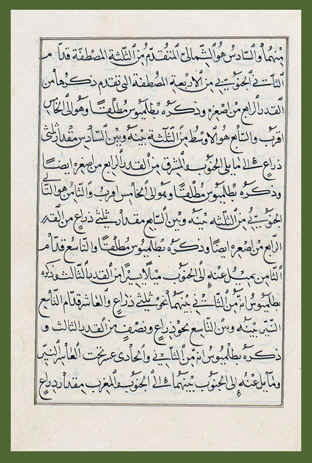 منهما والسادس هو الشمالي المتقدم من الثلثة المصطفة قدام
الثاني في الجنوب من الاربعة المصطفة التي تقدم ذكرها من
القدر الرابع من اصغره وذكره بطلميوس مطلقا وهو الى الخامس
اقرب والسابع هو الاوسط من الثلثة بينه وبين السادس مقدار ثلثي
ذراع في ما يلي الجنوب والمشرق من القدر الرابع من اصغره ايضا
وذكره بطلميوس مطلقا وهو الى الخامس اقرب والثامن هو التالي
الجنوبي من الثلثة بينه وبين السابع مقدار ثلثي ذراع من القدر
الرابع من اصغره ايضا وذكره بطلميوس مطلقا والتاسع قدام
الثامن يميل عنه الى الجنوب ميلا يسيرا من القدر الثالث وذكره
بطلميوس انه من الثاني بينهما نحو ثلثي ذراع والعاشر قدام التاسع
النير بينه وبين التاسع نحو ذراع ونصف من القدر الثالث و
ذكره بطلميوس انه من الثاني والحادي عشر تحت العاشر النير
ومايل عنه الى الجنوب بينهما في الجنوب والمغرب مقدار ذراع